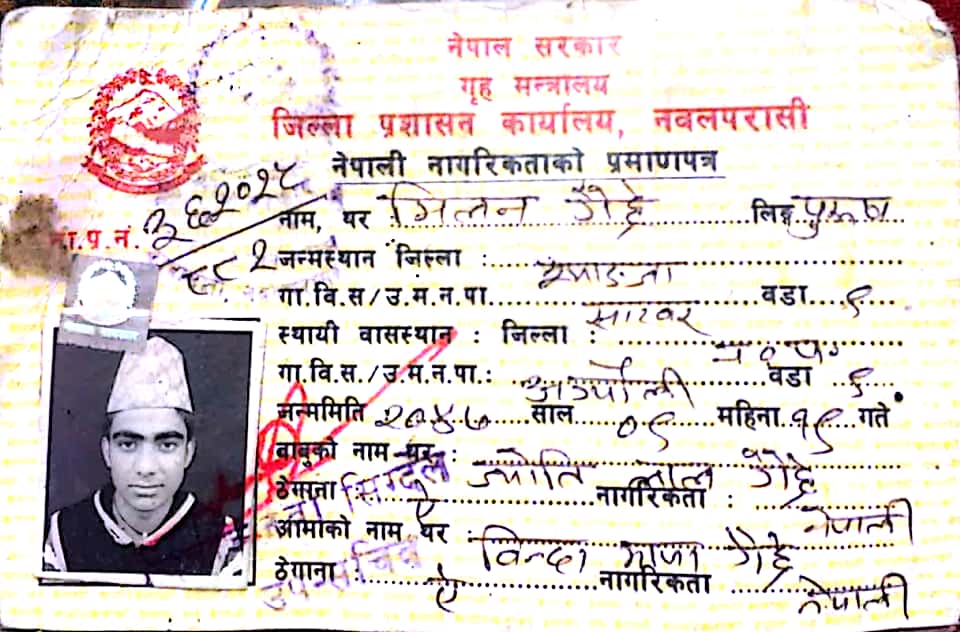 नेपाल सरकार
गृह मन्त्रालय
जिल्ला प्रशासन कार्यालय, नवलपरासी
नेपाली नागरिकताको प्रमाणपत्र
ना.प.नं.
नाम, थर मिलन गैह्रे लिङ्ग पुरूष
जन्मस्थान जिल्ला : स्याङजा
गा.वि.स/उ.म.न.पा. वडा ९
स्थायी वासस्थान : जिल्ला :
गा.वि.स./उ.म.न.पा.: वडा
जन्ममिति २०४७ साल ०९ महिना १९ गते
बाबुको नाम थर : ज्योति लाल गैह्रे
ठेगाना ऐ नागरिकता : नेपाली
आमाको नाम थर : गैह्रे
ठेगाना ऐ नागरिकता नेपाली